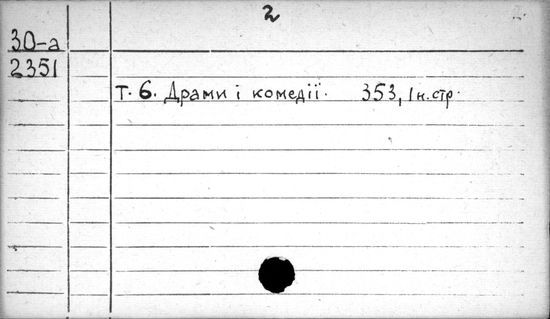 2
30-а
2351
Т. 6. Драми і комедії. 353, 1 н. стр.